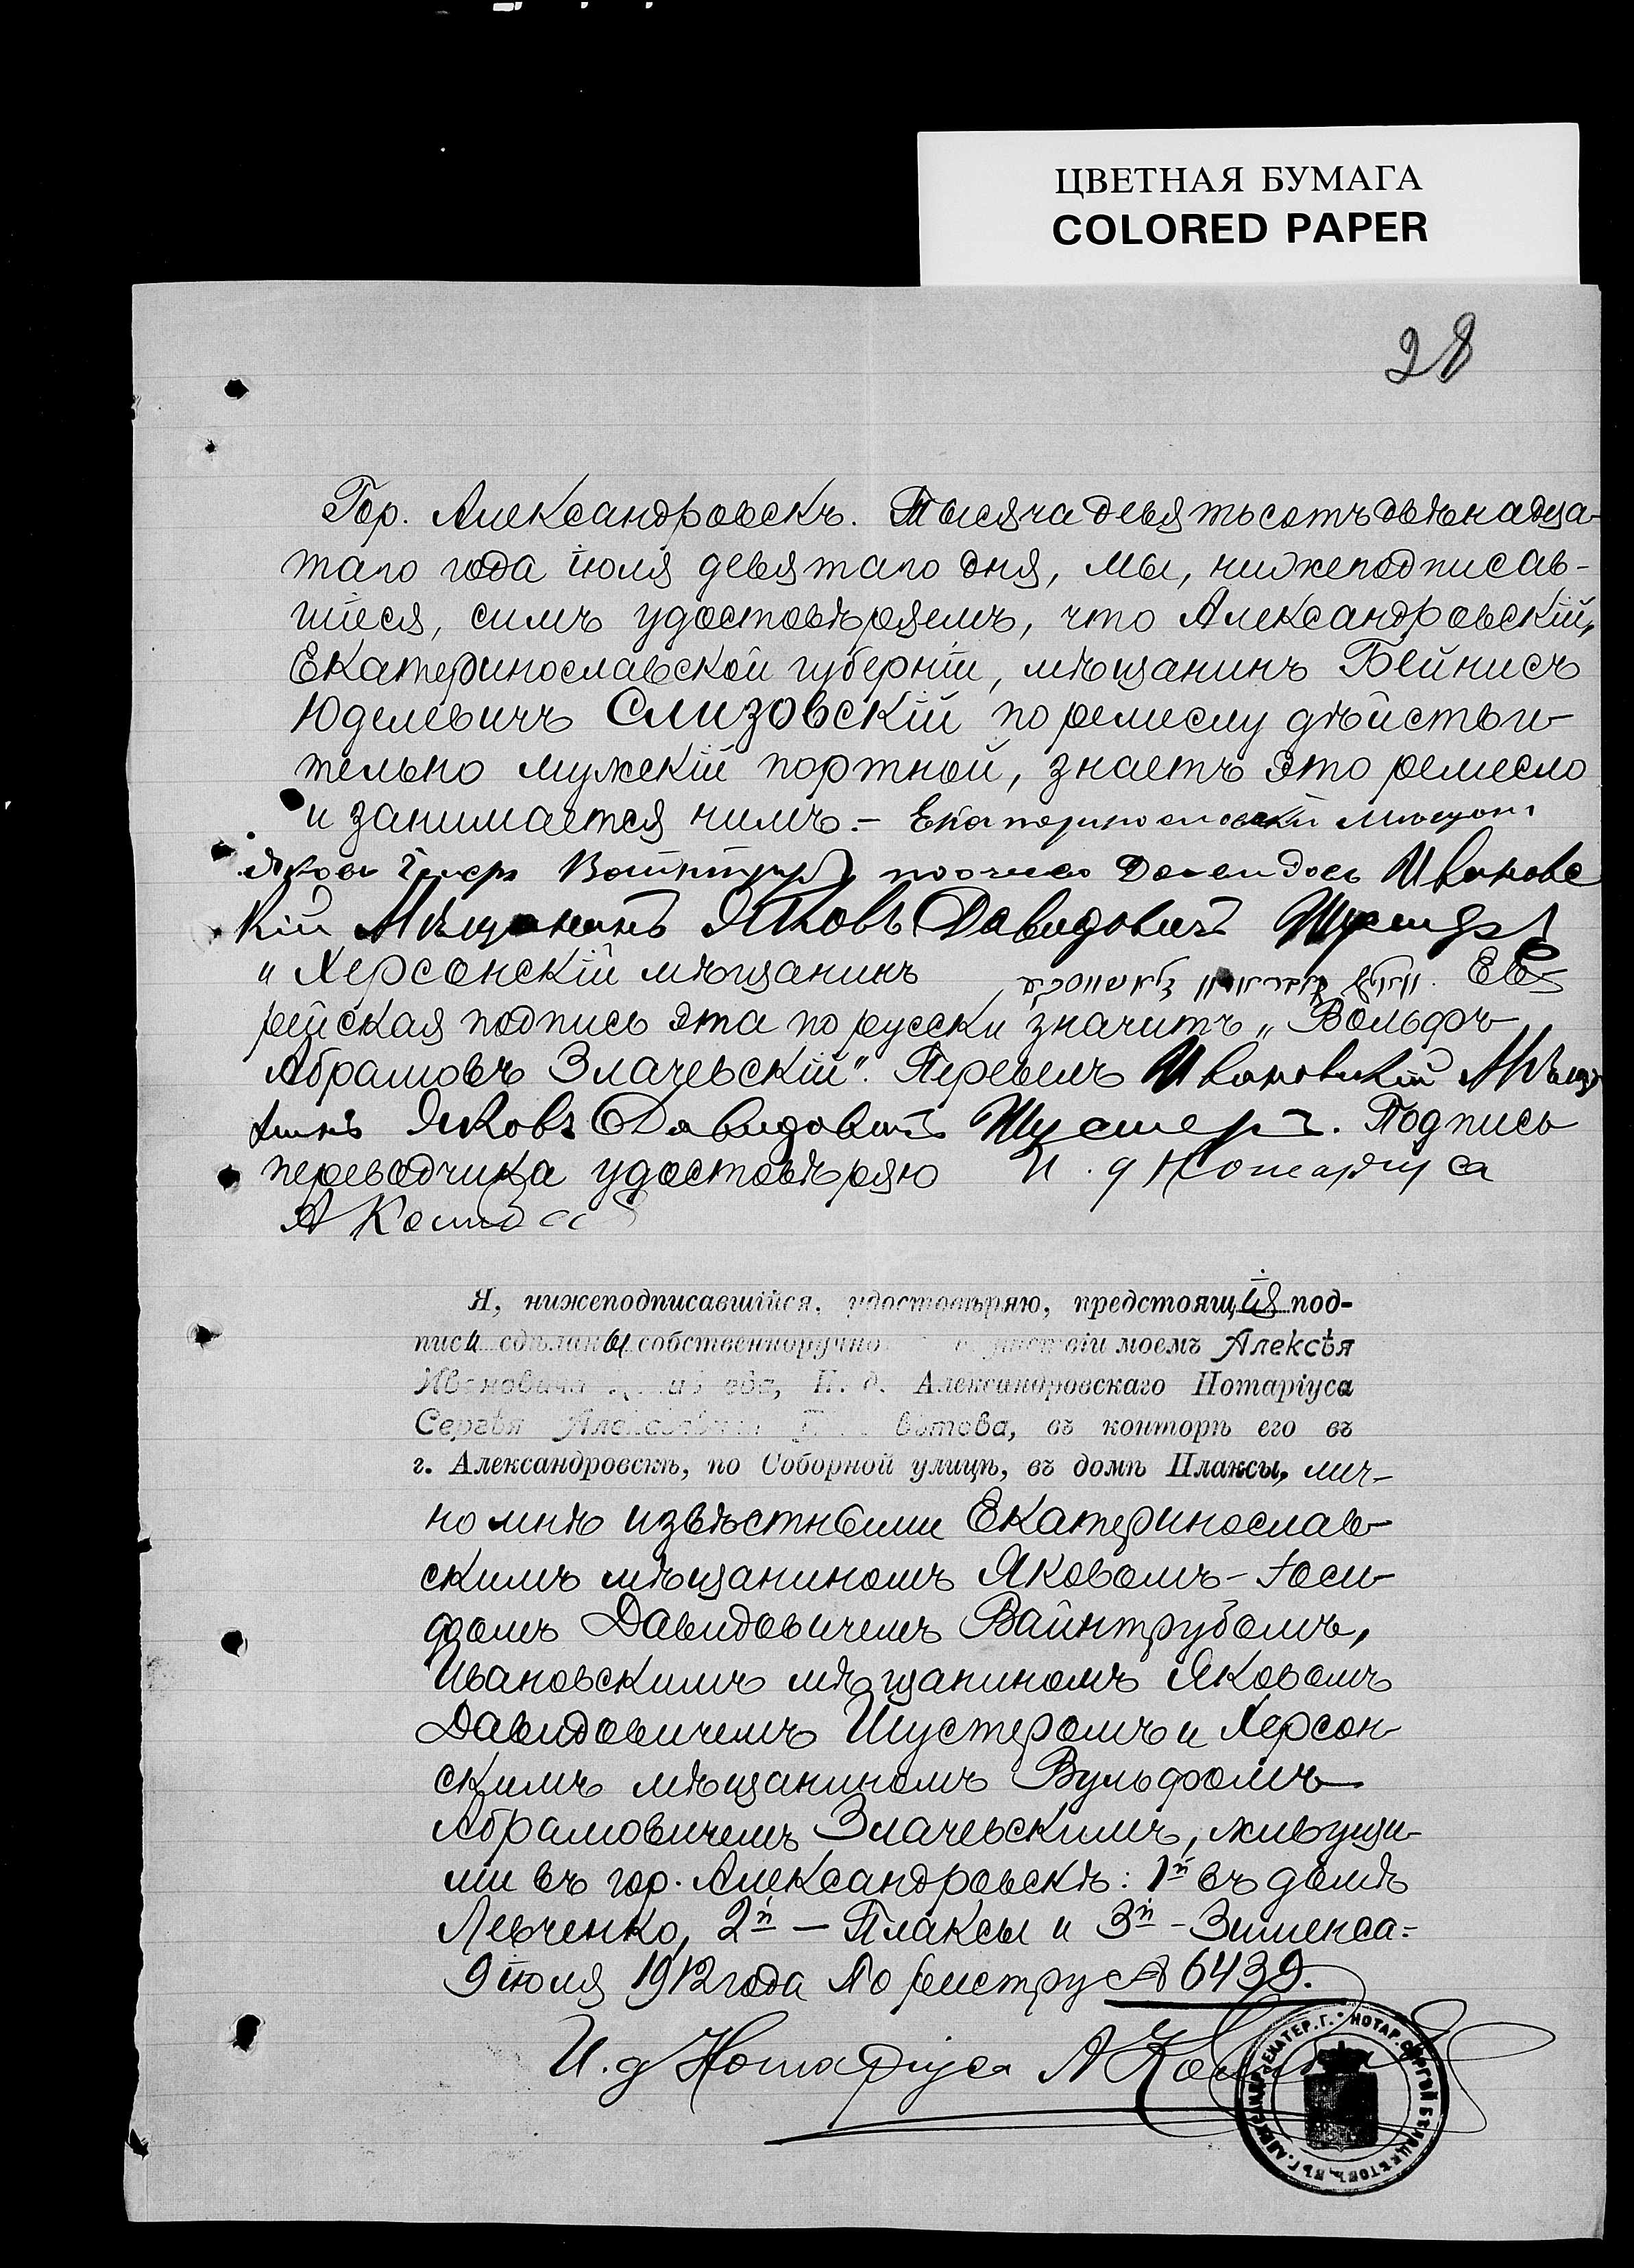 ЦВЕТНАЯ БУМАГА
COLORED PAPER
28
Гор. Александровскъ. Тысяча девятьсотъ двѣнадца-
таго года іюля девятаго дня, мы, нижеподписав-
шіеся, симъ удостовѣряемъ, что Александровскій,
Екатеринославской губерніи, мѣщанинъ Бейнисъ
Юделевичъ Слизовскій по ремеслу дѣйстви-
тельно мужскій портной, знаетъ это ремесло
и занимается нимъ.- Екатеринославскій мѣщан
Яковъ Ивановс
кій Мѣщанинъ Яковъ Давидовичъ Шустеръ
и Херсонскій мѣщанинъ Ев
рейская подпись эта по русски значитъ „Вольфъ
Абрамовъ Злачевскій". Перевелъ Ивановскій Мѣща
нинъ Яковъ Давидовичъ Шустеръ. Подпись
переводчика удостовѣряю И. д Нотаріуса
А
Я, нижеподписавшійся, удостовѣряю, предстоящія под-
писи сдѣланы собственноручно моемъ Алексѣя
Ивановича И. д. Александровскаго Нотаріуса
Сергѣя Алексѣевича въ конторѣ его въ
г. Александровскѣ, по Соборной улицѣ, въ домѣ Плаксы, лич-
но мнѣ извѣстными Екатеринослав-
скимъ мѣщаниномъ Яковомъ-Іоси-
фомъ Давидовичемъ Вайнтрубомъ,
Ивановскимъ мѣщаниномъ Яковомъ
Давидовичемъ Шустеромъ и Херсон-
скимъ мѣщаниномъ Вульфомъ
Абрамовичемъ Злачевскимъ, живущи-
ми въ гор. Александровскѣ: 1й въ домѣ
Левченко, 2й — Плаксы и 3й - Зименса.
9 іюля 1912 года По реестру № 6439.
И. д Нотаріуса А